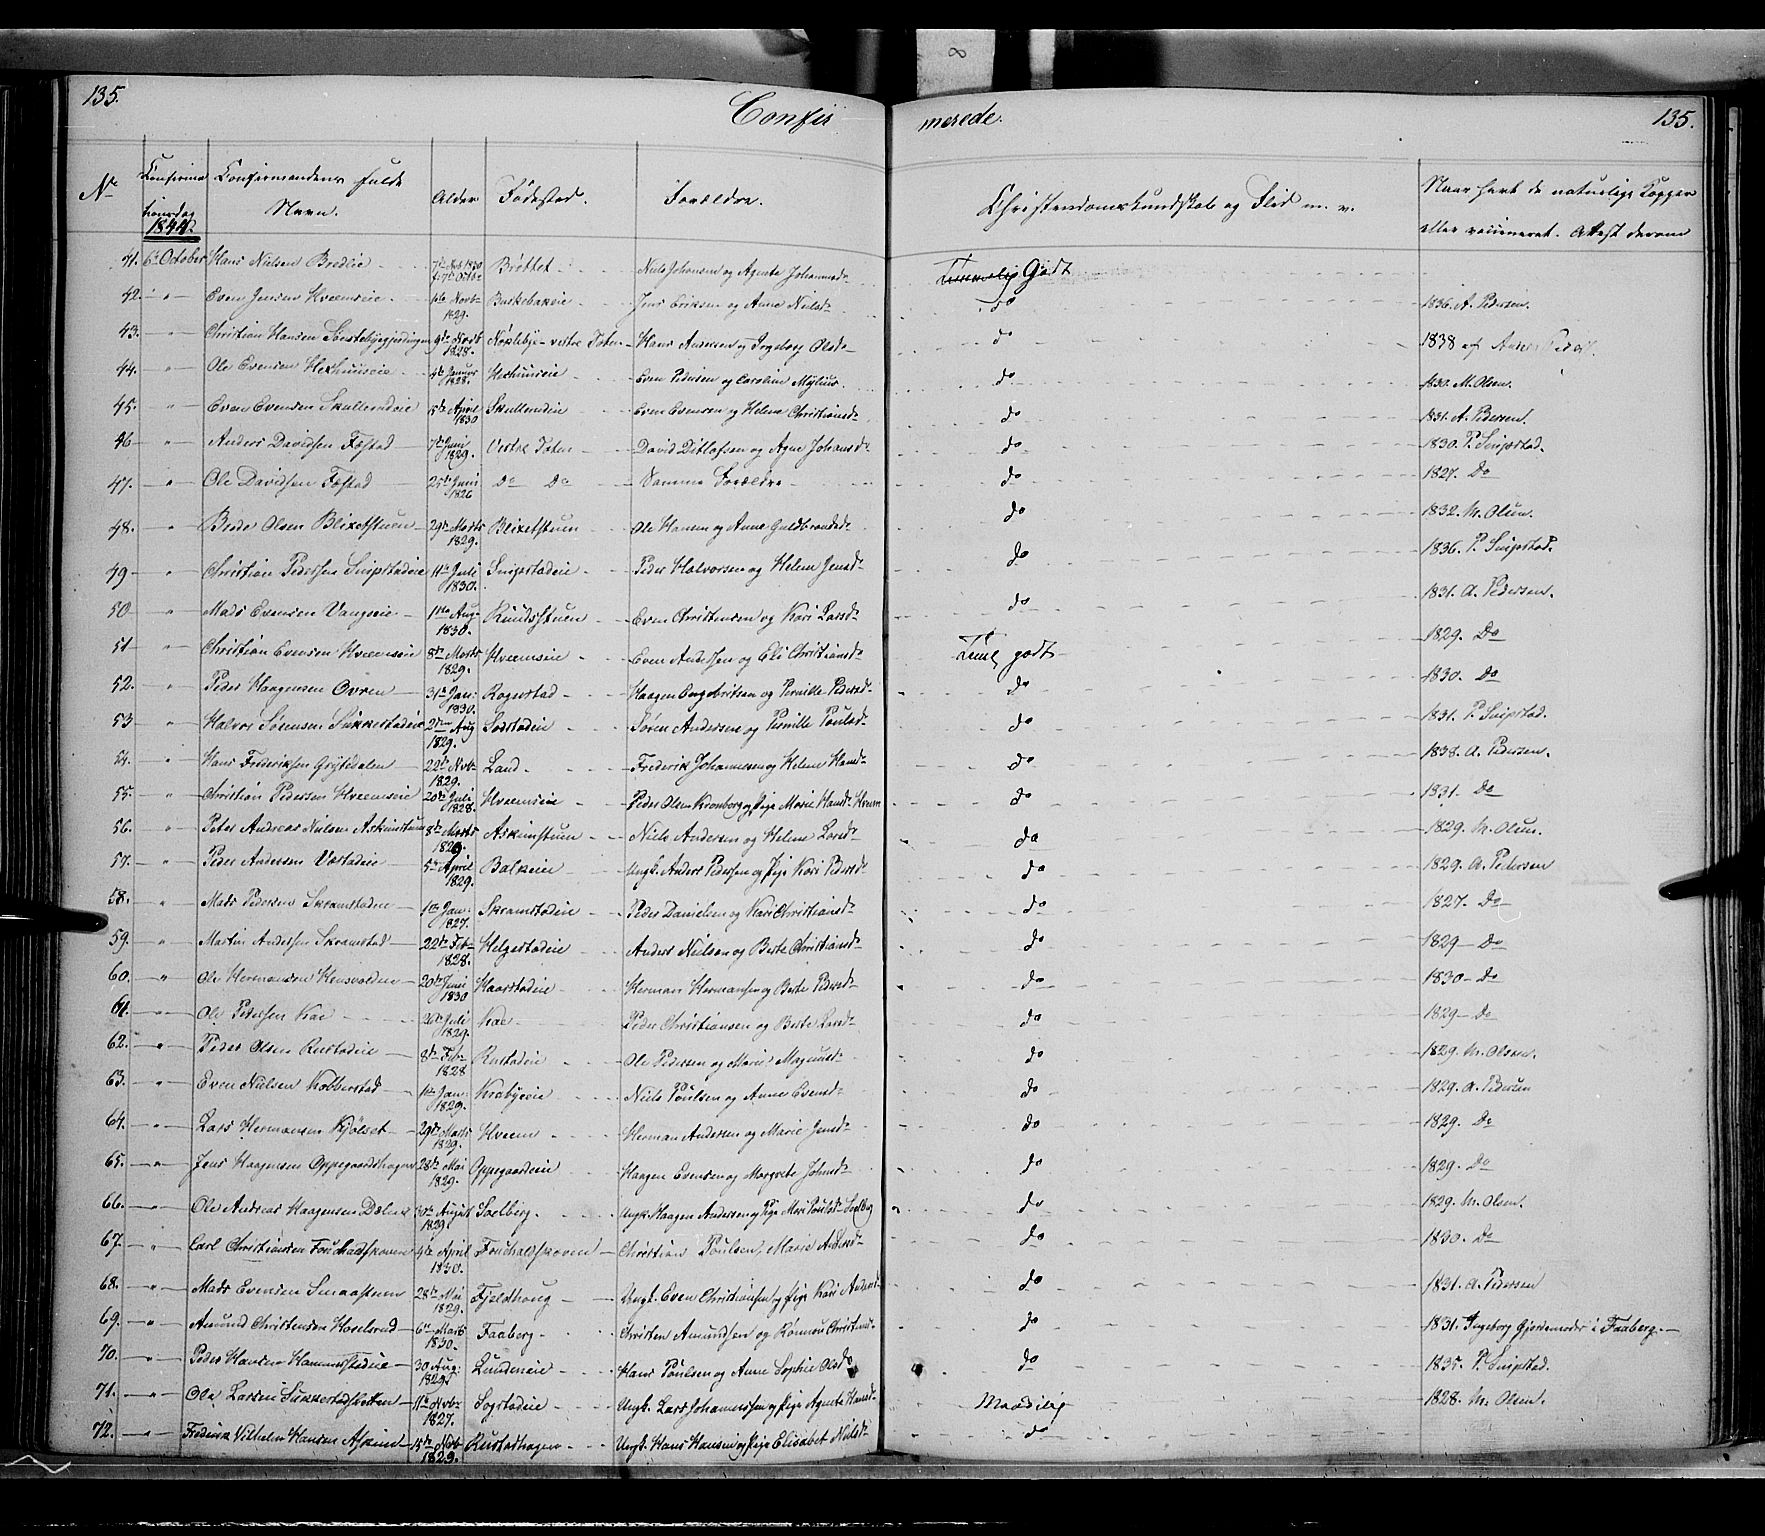 135.
Confir
merede.
135.
8
No
Confirma
tionsdag
1844.
Confirmandens fulde
Navn.
Alder
Fødested.
Forældre.
Christendomskundskab og Flid m. v.
Naar havt de naturlige Kopper
eller vaccineret. Attest derom
41. 6te October Hans Nielsen 1830 Brøttet Niels Johansen og Agnete Johannesd. Temmelig Godt
42. " Even Jensen Hveemseie 1829. Jens Eriksen og Anne Nielsd. do 1836. A. Pedersen.
43. " Christian Hansen 9de 1828. vestre Toten Hans Andersen og Ingeborg Olsd. do 1838 af Anders
44. " Ole Evensen Hexhuuseie 4de Januar 1828. Hexhuuseie Even Pedersen og Caroline Mylius. do 1830. M. Olsen.
45. " Even Evensen Skullerudeie 5te April 1830 Skullerudeie Even Evensen og Helene Christiansd. do 1831. A. Pedersen.
46 " Anders Davidsen Fæstad 7de Juni 1829. Vestre Toten David Ditlofsen og Agne Johansd. do 1830. P. Snipstad.
47. " Ole Davidsen Fæstad 25de Juni 1826 Do Do Samme Forældre do 1827. Do
48. " Brede Olsen Blixetstuen 29de Marts 1829. Blixetstuen Ole Hansen og Anne Guldbrandsd. do 1832. M. Olsen.
49 " Christian Pedersen Snipstadeie 11te Juli 1830. Snipstadeie Peder Halvorsen og Helene Jensd. do 1836. P. Snipstad.
50 " Mads Evensen Vangseie 11te Aug 1830. Rundsstuen Even Christensen og Kari Larsd. do 1831. A. Pedersen.
51 " Christian Evensen Hveemseie 8de Marts 1829. Hveemseie Even Andersen og Eli Christiansd. Teml godt 1829. Do
52. " Peder Haagensen Ovren 31te Jan: 1830. Rognstad Haagen Engebritsen og Pernille Pedersd. do 1830. Do
53 " Halvor Sørensen Sukkestadeie Aug 1829. Søren Andersen og Pernille Poulsd. do 1831. P. Snipstad.
54. " Hans Frederiksen Grytedalen 22de Novb 1829. Land Frederik Johannesen og Helene Hansd. do 1838. A. Pedersen.
55. " Christian Pedersen Hveemseie 20de Juli 1828. Hveemseie Peder Olsen Kronborg og Pige Marie Hansd. Hveem do 1831. Do
56. " Peter Andreas Nielsen Askimstuen 8de Marts 1829. Askimstuen Niels Andersen og Helene Larsd. do 1829. M. Olsen.
57. " Peder Andersen 5te April 1829. Balkeeie Ungk. Anders Pedersen og Pige Kari Pedersd. do 1829. A. Pedersen
58. " Mads Pedersen Skramstadeie 1ste Jan: 1827. Skramstadeie Peder Danielsen og Kari Christiansd. do 1827. Do
59. " Martin Andersen Skramstad 22de Feb 1828. Helgestadeie Anders Nielsen og Berte Christiansd. do 1829 Do
60. " Ole Hermansen 20de Juni 1830 Haarstadeie Herman Hermansen og Berte Pedersd. do 1830 Do
61. " Ole Pedersen Kae 26de Juli 1829. Kae Peder Christiansen og Berte Larsd. do 1829 Do
62. " Peder Olsen Rustadeie 8de Feb 1828 Rustadeie Ole Pedersen og Marie Magnusd. do 1829. M. Olsen.
63. " Even Nielsen Kobberstad 1ste Jan: 1829. Krabyeie Niels Poulsen og Anne Evensd. do 1829. A. Pedersen
64. " Lars Hermansen Kjølset 29de Marts 1829. Hveem Herman Andersen og Marie Jensd. do 1829. Do
65. " Jens Haagensen Oppegaardshagen 28de Mai 1829. Oppegaardeie Haagen Evensen og Margrete Johnsd. do 1829. Do
66. " Ole Andreas Haagensen 30te August 1829. Soelberg Ungk. Haagen Andersen og Pige Mari Poulsd. Soelberg do 1829. M. Olsen.
67. " Carl Christiansen 4de April 1830. Christian Poulsen, Marie Andersd. do 1830. Do
68. " Mads Evensen Smaastuen 28de Mai 1829. Fjeldhoug Ungk. Even Christiansen og Pige Kari Andersd. do 1831. A. Pedersen
69. " Amund Christensen Haslerud 6te Marts 1830. Faaberg Christen Amundsen og Rønnou Christensd. do 1831. Ingeborg Gjordemoder i Faaberg.
70. " Peder Hansen Hammerstadeie 30 Aug: 1829. Lundseeie Hans Poulsen og Anne Sophie Olsd. do 1835. P. Snipstad.
71. " Ole Larsen 11te Novb 1827. Sogstadeie Ungk. Lars Johannesen og Pige Agnete Hansd. Maadelig 1828. M. Olsen.
72. " Frederik Vilhelm Hansen Askim 15de Novb 1829. Rustadhagen Ungk. Hans Hansen og Pige Elisabet Nielsd. do